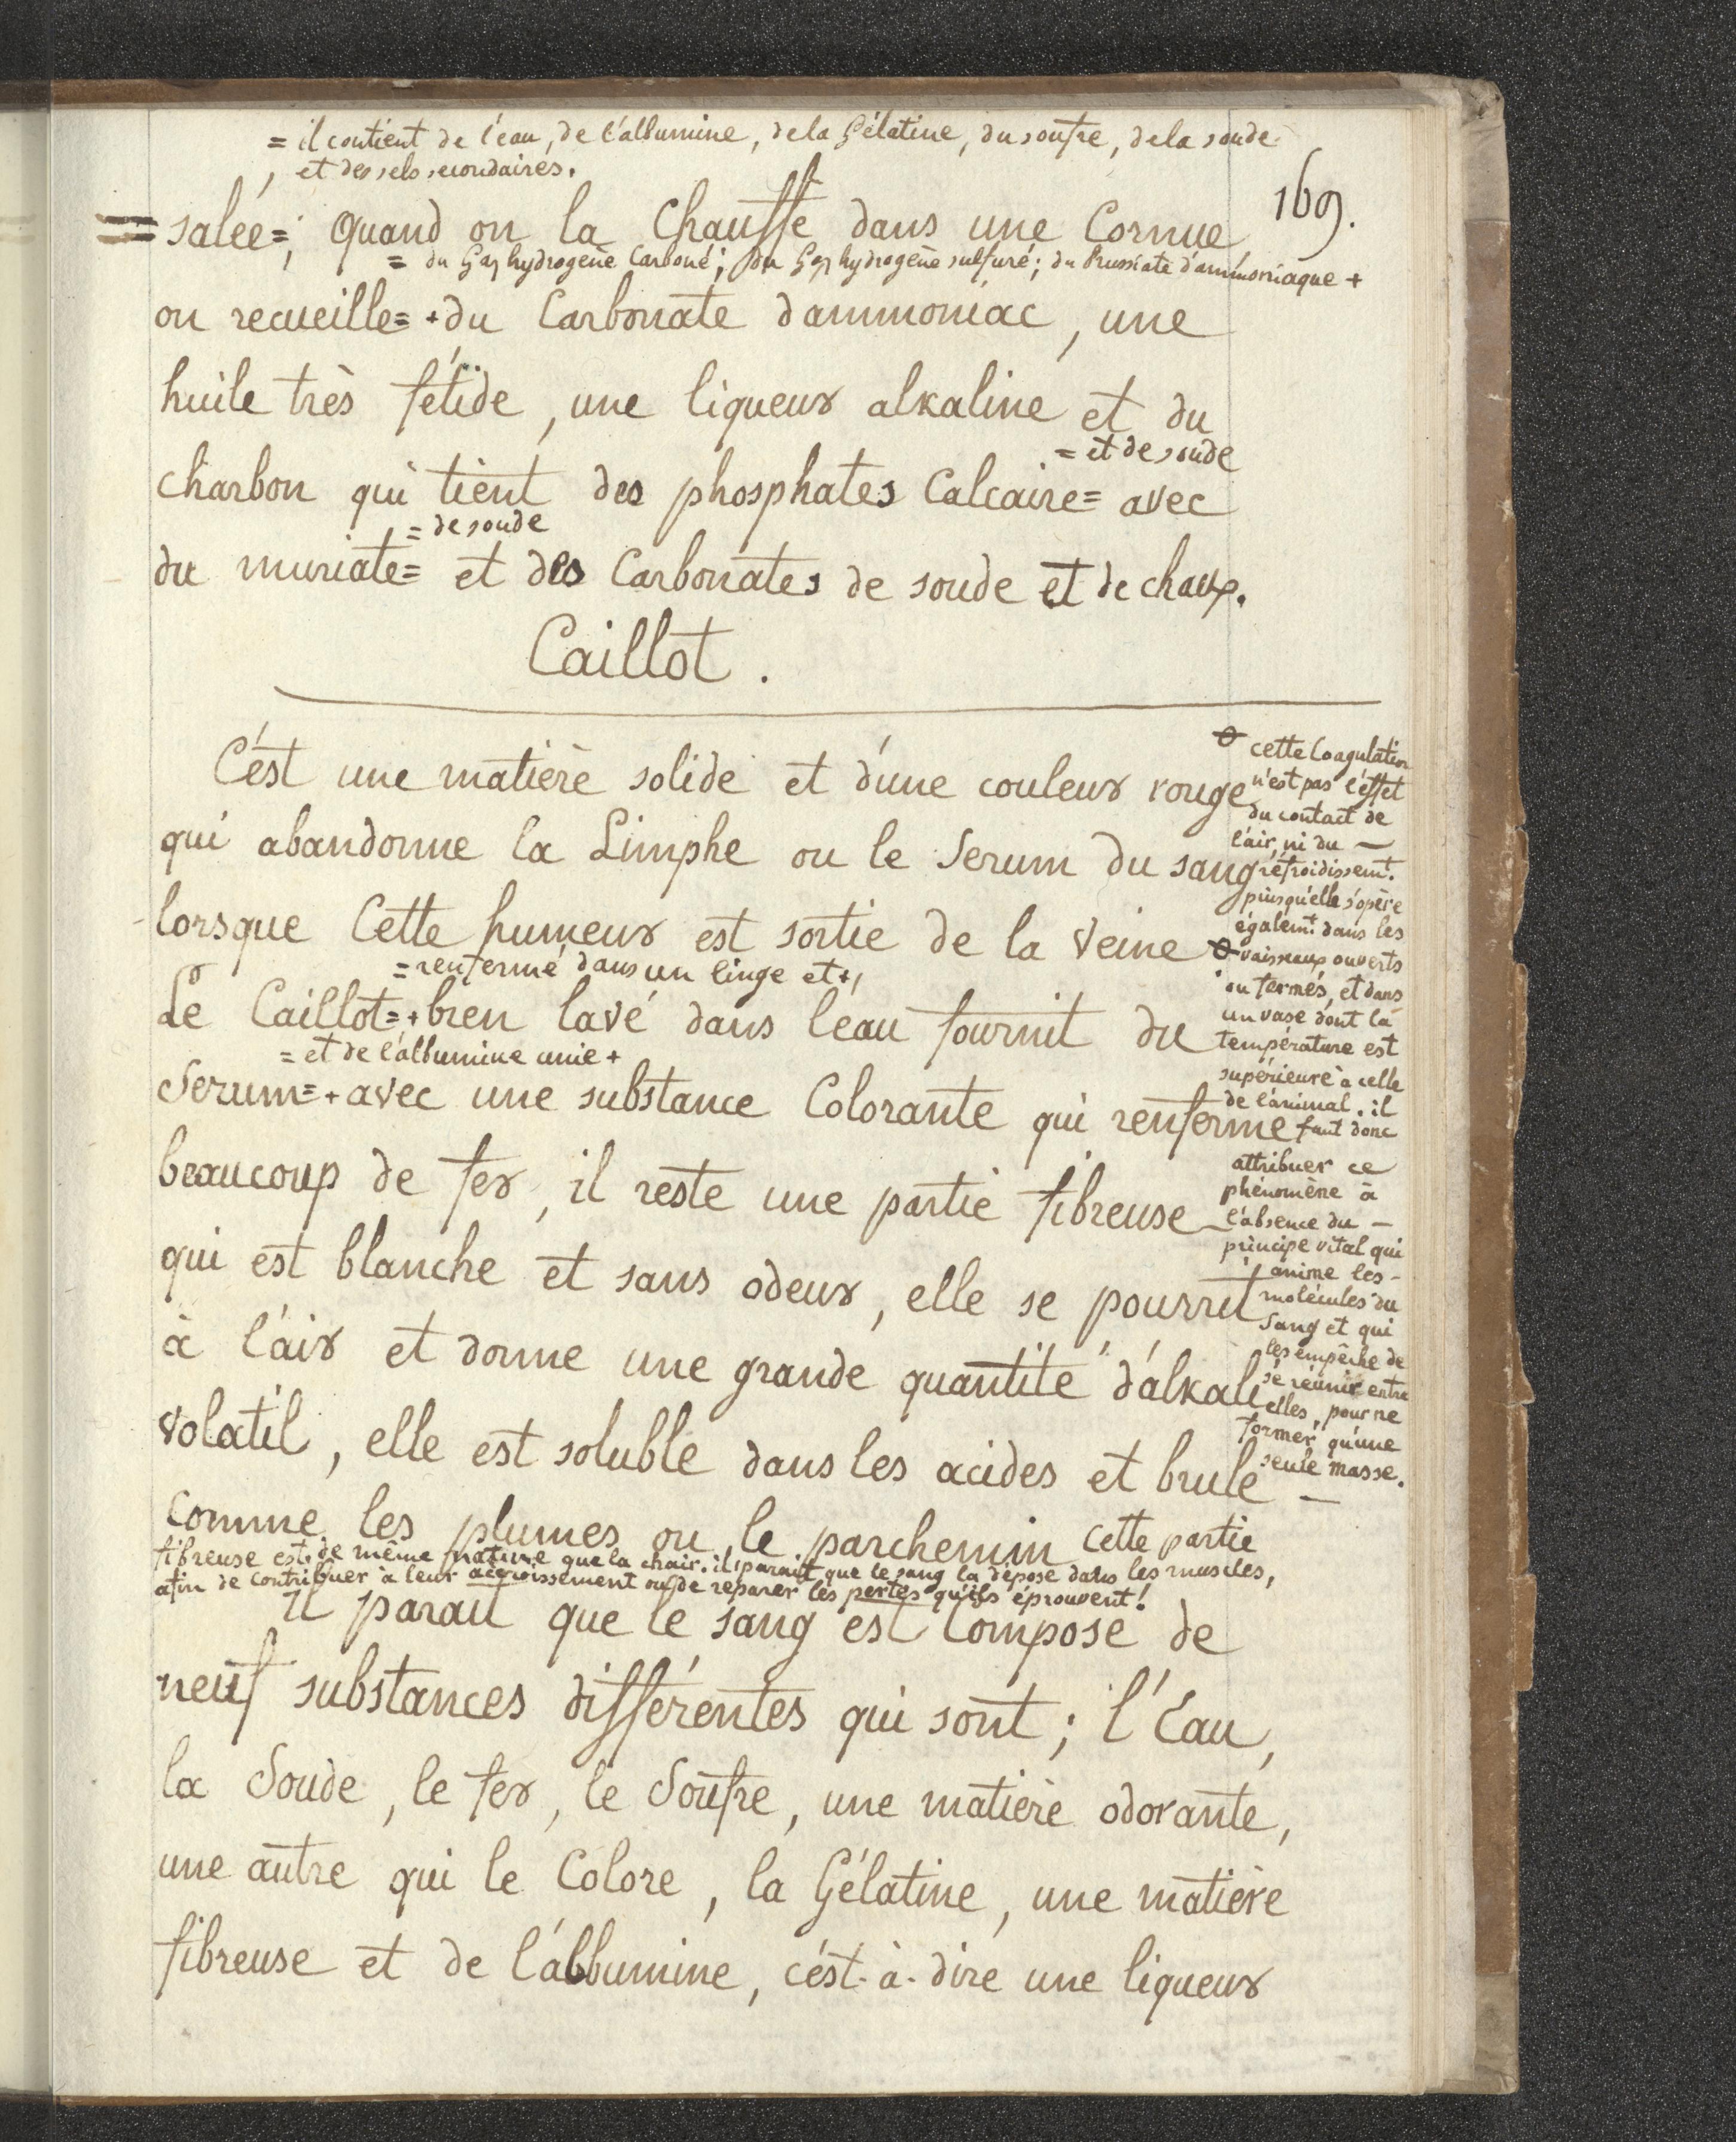 = il contient de l'eau, de l'albumine, de la Gélatine, du soufre, de la soude
, et des sels secondaires.
169.
= salée =; Quand on la Chauffe dans une Cornue
= du Gaz hydrogène Carboné; du Gaz hydrogène sulfuré; du Prussiate d'ammoniaque +
on recueille = + du Carbonate d'ammoniac, une
huile très fétide, une liqueur alkaline et du
= et de soude
charbon qui tient des phosphates Calcaire = avec
= de soude
du muriate = et des Carbonates de soude et de chaux.
Caillot.
C'est une matière solide et d'une couleur rouge
qui abandonne la Limphe ou le Serum du sang
lorsque Cette humeur est sortie de la Veine
= renfermé dans un linge et +
Le Caillot = + bien lavé dans l'eau fournit du
= et de l'albumine unie +
Serum = + avec une substance Colorante qui renferme
beaucoup de fer, il reste une partie fibreuse
qui est blanche et sans odeur, elle se pourrit
à l'air et donne une grande quantité d'alkali
volatil, elle est soluble dans les acides et brule —
comme les plumes ou le parchemin cette partie
fibreuse est de même nature que la chair. il parait que le sang la dépose dans les muscles,
afin de contribuer à leur accroissement ou de reparer les pertes qu'ils éprouvent!
Il parait que le sang est Composé de
neuf substances différentes qui sont; l'Eau,
la Soude, le fer, le Soufre, une matière odorante,
une autre qui le Colore, la Gélatine, une matière
fibreuse et de l'albumine, c'est-à-dire une liqueur
cette Coagulation
n'est pas l'effet
du contact de
l'air, ni du —
réfroidissemt.
puisqu'elle s'opère
égalemt. dans les
vaisseaux ouverts
ou fermés, et dans
un vase dont la
température est
supérieure à celle
de l'animal. il
faut donc
attribuer ce
phénomène à
l'absence du —
principe vital qui
anime les -
molécules du
Sang et qui
les empêche de
se réunir entre
elles, pour ne
former qu'une
seule masse.